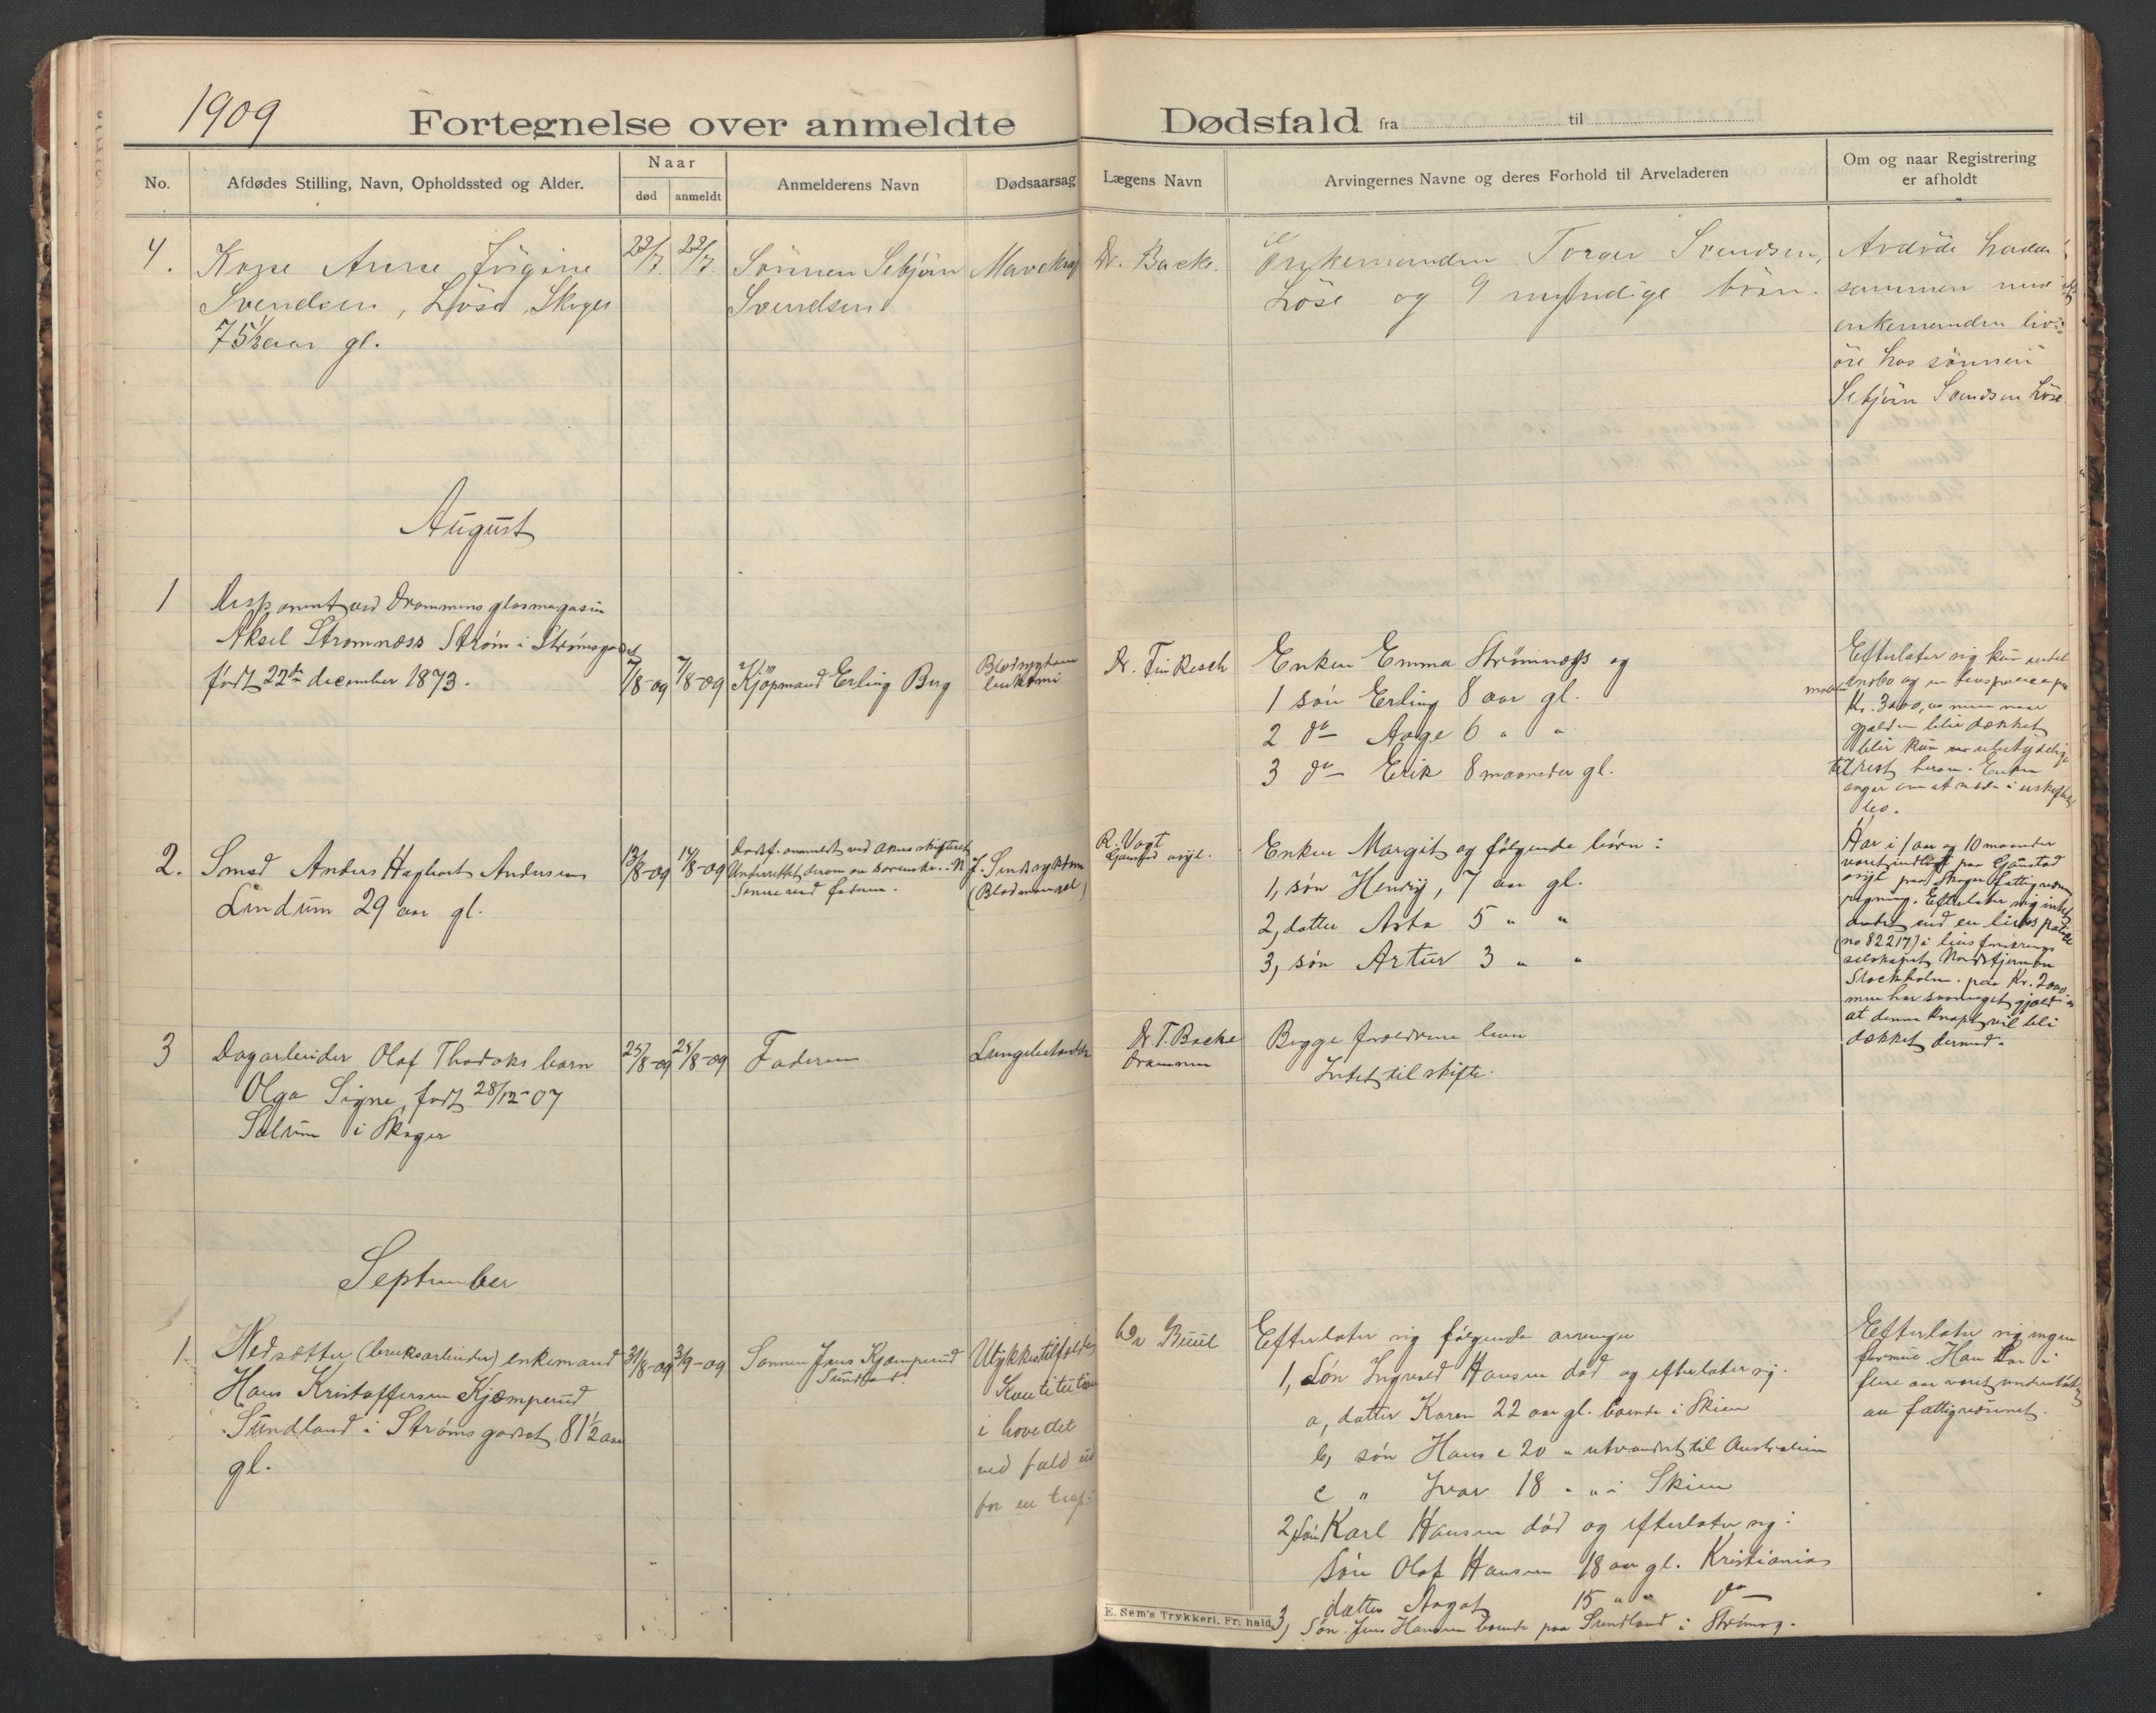 1909
Fortegnelse over anmeldte Dødsfald fra til
No.
Afdødes Stilling, Navn, Opholdssted og Alder.
Naar
død
anmeldt
Anmelderens Navn
Dødsaarsag
Lægens Navn
Arvingernes Navne og deres Forhold til Arveladeren
Om og naar Registrering
er afholdt
4.
Kone Anne Jörgine
Svendsen, Löse, Skoger
75½ aar gl.
22/7.
22/7.
Sönnen Sebjörn
Svendsen
Dr. Backe.
Enkemanden Torger Svendsen,
Löse og 9 myndige börn.
Avdöde hadde
sammen med
enkemanden liv-
öre hos sönnen
Sebjörn Svendsen Löse
August
1
Disponent ved Drammens glasmagasin
Aksel Strømnæss Strøm i Strømsgodset
født 22de december 1873.
7/8-09
7/8-09
Kjöpmand Erling Berg
Blodsygdom
leukæmi
Enken Emma Strømnæss og
1 søn Erling 8 aar gl.
2 do Aage 6 " "
3 do Erik 8 maaneder gl.
Efterlater sig kun
indbo og en livspolice paa
Kr. 3000,00 men naar
gjælden blir dækket
blir kun ubetydelig
tilrest herav. Enken
om at sidde i uskiftet
bo.
2.
Smed Anders Hagbart Andersen
Lindum 29 aar gl.
13/8-09
14/8-09
Dødsf. anmeldt ved
Underrettet derom av
J. Sindssygdom
(Blodmangel)
R. Vogt
Gaustad asyl.
Enken Margit og følgende børn:
1, søn Henry, 7 aar gl.
2, datter Asta 5 " "
3, søn Artur 3 " "
Har i 1 aar og 10 maaneder
været indlagt paa Gaustad
asyl paa Skoger fattigvæsens
regning. Efterlater sig intet
andet end en livspolice
(no 82217) i livsforsikrings
selskapet Nordstjernen
Stockholm. paa Kr. 2000
men har saa meget gjæld
at denne knapt vil bli
dækket dermed.
3
Dagarbeider Olaf Thodoks barn
Olga Signe, født 28/12-07
Solum i Skoger
25/8-09
25/8-09
Faderen
Dr. T. Backe
Drammen
Begge forældrene lever
Intet til skifte.
September
1.
Nedsætter (bruksarbeider) enkemand
Hans Kristoffersen Kjæmperud
Sundland i Strømsgodset 81½ aar
gl.
31/8-09
3/9-09
Sønnen Jens Kjæmperud
Sundland.
Ulykkestilfælde
i hovedet
ved fald
for en
Efterlater sig følgende arvinger
1, Søn Ingvald Hansen død og efterlater sig:
a, datter Karen 22 aar gl. boende i Skien
b, søn Hans 20 " utvandret til Australien
c " Ivar 18 " " i Skien
2, søn Karl Hansen död og efterlater sig:
Søn Olaf Hansen 18 aar gl. Kristiania
datter Aagot 15 " " do
3, Søn Jens Hansen boende paa Sundland i Strömsg.
Efterlater sig ingen
formue. Han har i
flere aar været understøttet
av fattigvæsenet.
E. Sem's Trykkeri, Fr.hald.